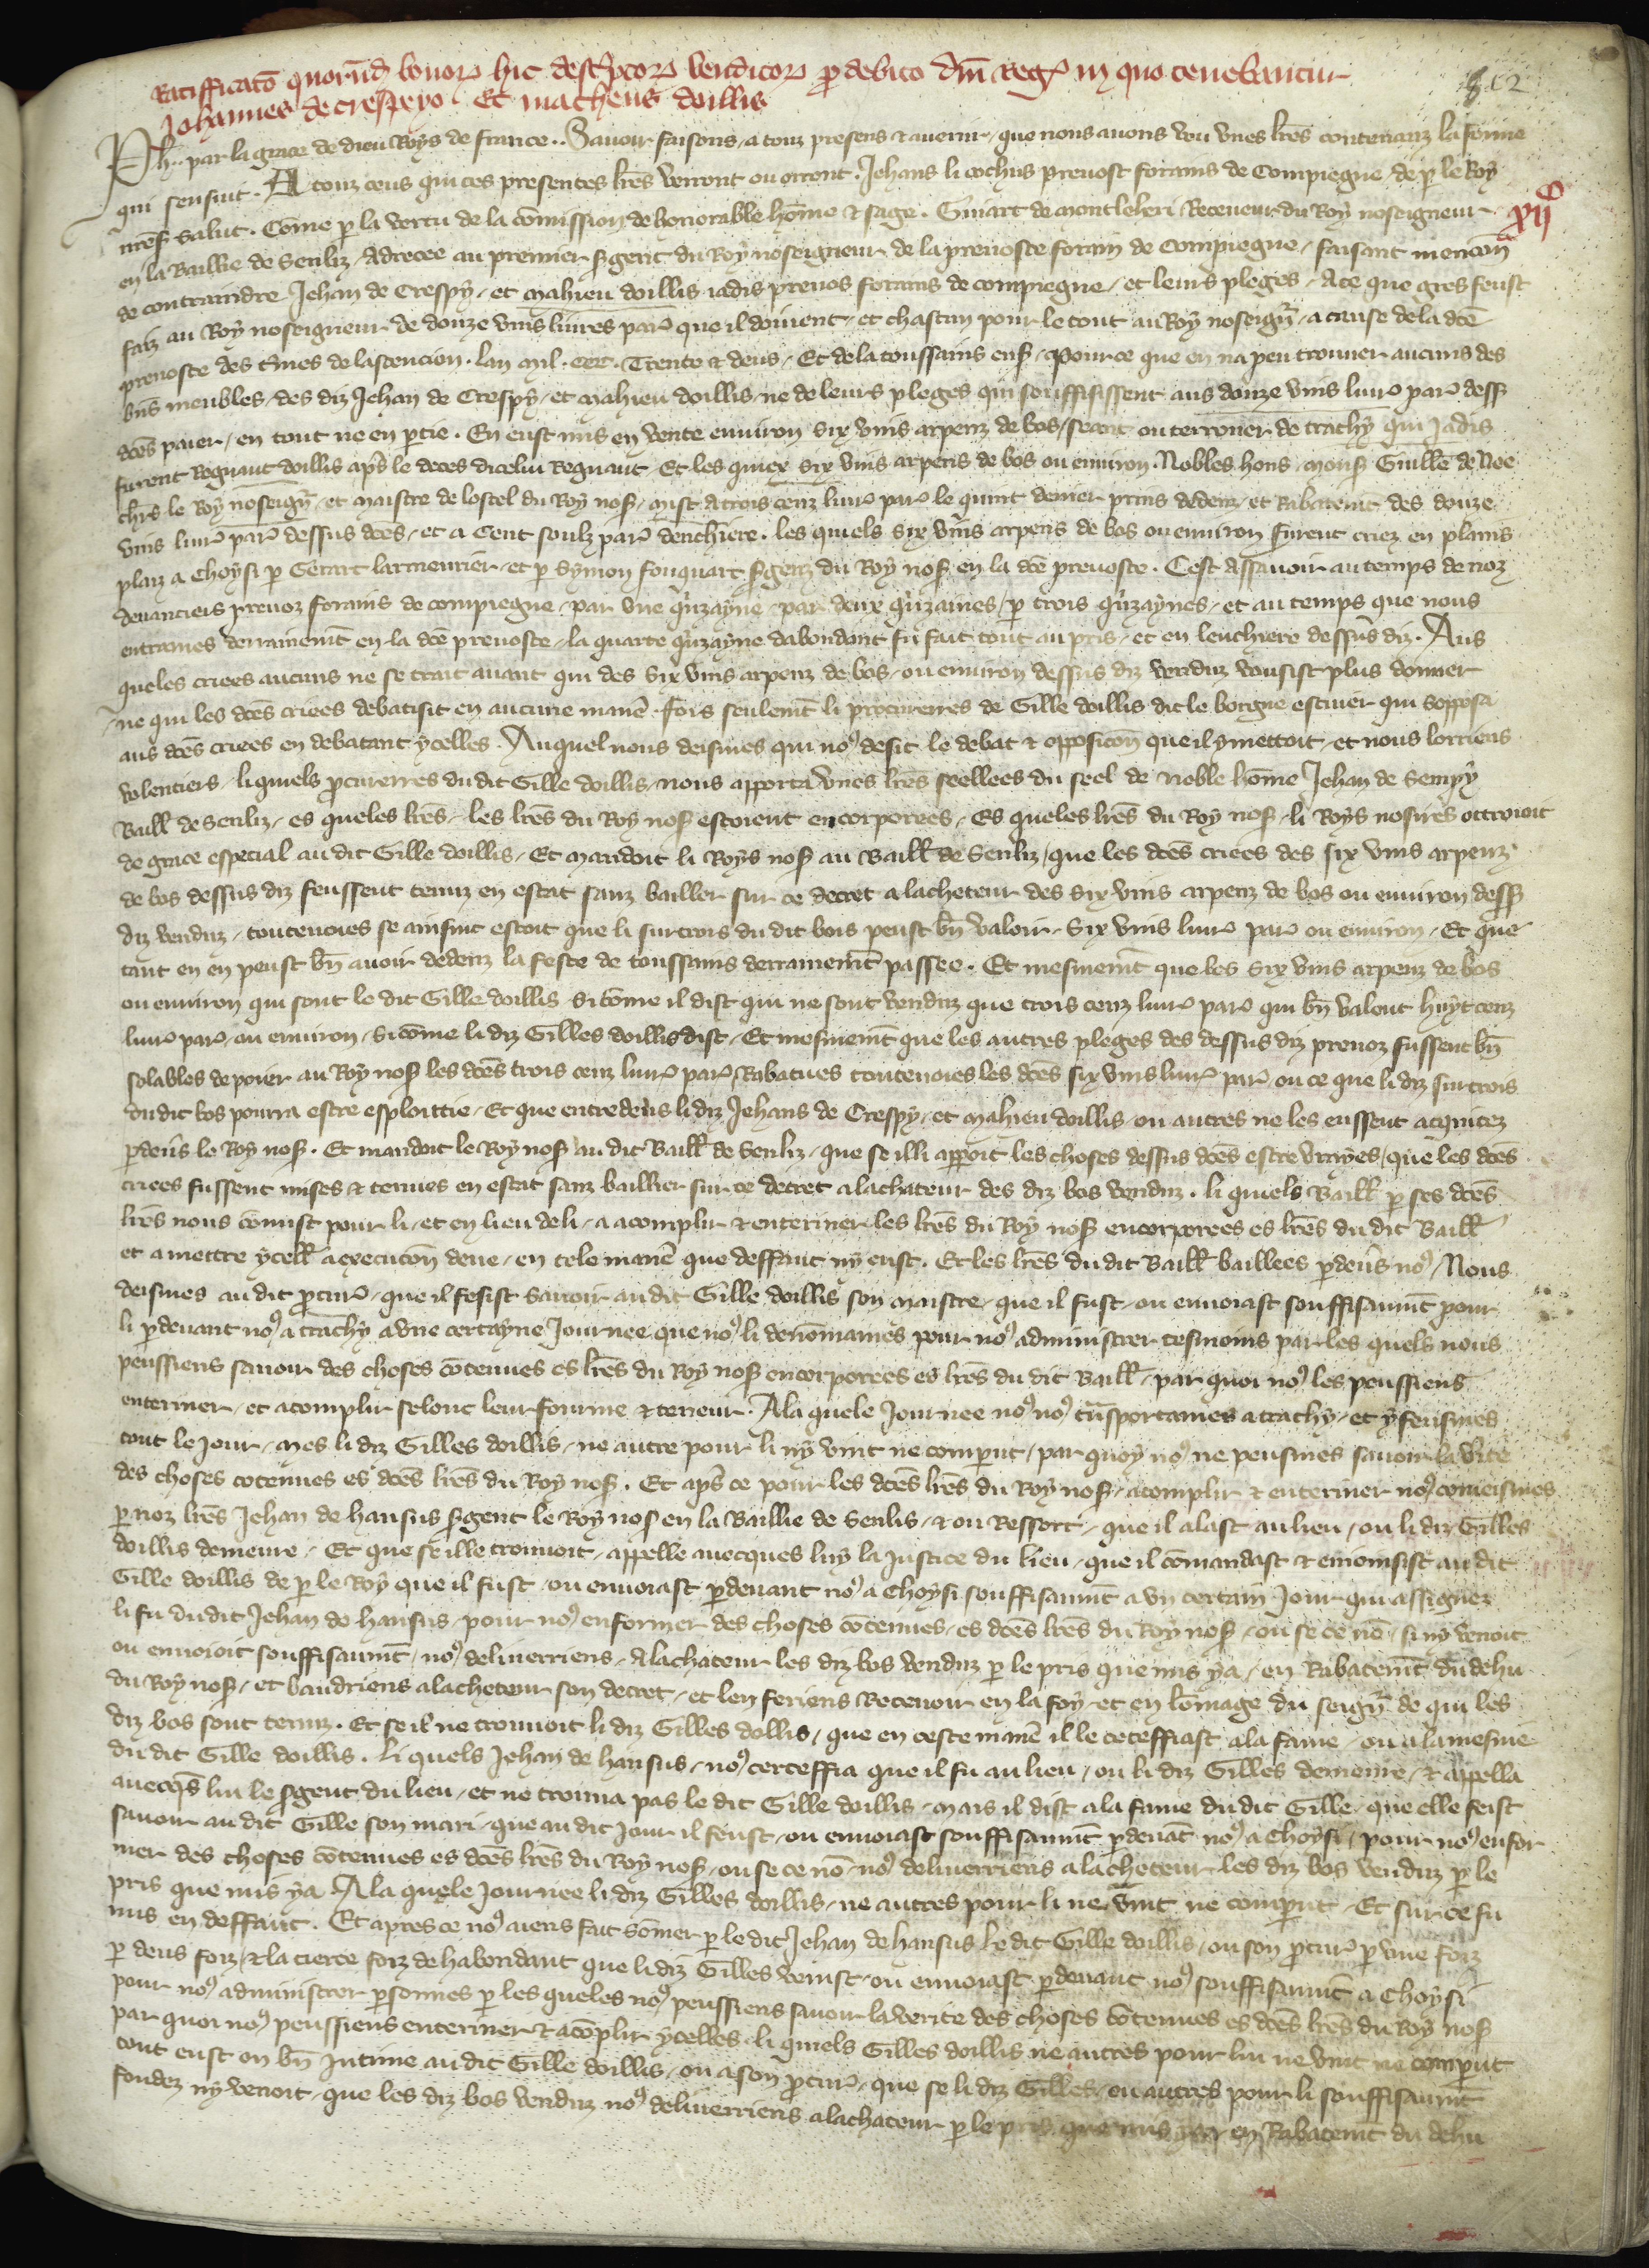 Ratifficatō quorūdā bonorꝝ hic descͥptorꝝ venditorꝝ ꝓ debito dn̄i Regꝭ in quo tenebantur
Johannes de crespeyo. Et matheus doillis
xijᶜ
Ph. par la grace de dieu Roys de france.. Savoir faisons, a touz presens & avenir, que nous avons veu unes lr̄es contenanz la forme
qui sensuit. A touz ceus qui ces presentes lr̄es verront ou orront. Jehans li cochus prevost forains de Compiegne, de ꝑ le Roy
nr̄eſ salut. Cōme ꝑ la vertu de la cōmission de honorable hōme & sage. Guiart de montleheri Receveur du Roy noseigneur
en la Baillie de Senliz, Adrecee au premier ſgent du Roy noseigneur de la prevoste forain de Compiegne, faisant mencōn
de contraindre Jehan de Crespy, et Mahieu doillis iadis prevos forains de compiegne, et leurs pleges, A ce que gres feust
faiz au Roy noseigneur de douze vins livres parꝭ que il doivent, et chascun pour le tout au Roy noseigʳ, a cause de la dc̄e
prevoste des tͥmes de lascencion. lan mil. ccc. Trente & deus, Et de la toussains enſ, Pour ce que en na peu trouver aucuns des
bn̄s meubles, des diz Jehan de Crespy, et Mahieu doillis, ne de leurs pleges qui souffisissent aus douze vins livrꝭ parꝭ dess
dc̄es paier, en tout ne en ꝑtie. En eust mis en vente environ six vins arpenz de bos, seant ou terrouer de trachy qui Jadis
furent Regnaut doillis apͥs le deces dicelui Regnaut Et les quiex six vins arpens de bos ou environ. Nobles hons, monſ Guill̄e de Noe
chr̄s le Roy noseigʳ, et maistre de lostel du Roy noſ, mist a trois cenz livrꝭ parꝭ le quint denier prins dedenz, et Rabatem̄t des douze
vins livrꝭ parꝭ dessus dc̄es, et a Cent soulz parꝭ dencͪhiere. les quiels six vins arpens de bos ou environ furent criez en plains
plaiz a Choysi ꝑ Gerart larmeurier, et ꝑ Symon fouquart ſgenz du Roy noſ en la dc̄e prevoste. Cest Assavoir au temps de noz
devanciers prevoz forains de compiegne, par une qͥnzayne, par deux qͥnzaines, ꝑ trois qͥnzaynes, et au temps que nous
entrames derrainem̄t en la dc̄e prevoste, la quarte qͥnzayne dabondant fu fait tout au pris, et en lenchiere dessus diz. Aus
queles criees aucuns ne se trait avant qui des six vins arpenz de bos, ou environ dessus diz venduz vousist plus donner
ne qui les dc̄es criees debatisit en aucune manē. Fors seulem̄t li procureres de Gille doillis dit le borgne escuier qui sopposa
aus dc̄es criees en debatant ycelles. Auquel nous deismes qui noꝰ desit le debat & opposicōn que il y mettoit, et nous lorriens
volentiers, liquiels ꝓcureres du dit Gille doillis, nous apporta unes lr̄es seellees du seel de noble hōme Jehan de Sempy
Baill̄ de Senliz, es queles lr̄es, les lr̄es du Roy noſ estoient encorporees, Es queles lr̄es du Roy noſ, li Roys nosires ottroioit
de grace especial au dit Gille doillis, Et mandoit li Roys noſ au Baill̄ de Senliz, que les dc̄es criees des six vins arpenz
de bos dessus diz feussent tenuz en estat sanz bailler sur ce decret a lacheteur des six vins arpenz de bos ou environ dess
diz venduz, toutevoies se ainsint estoit que li surcrois du dit bois peust bn̄ valoir, six vins livrꝭ parꝭ ou environ, Et que
tant en en peust bn̄ avoir dedenz la feste de toussains derrainem̄t passee. Et mesmem̄t que les six vins arpenz de bos
ou environ qui sont le dit Gille doillis si cōme il dist qui ne sont venduz que trois cenz livrꝭ parꝭ qui bn̄ valent huyt cenz
livrꝭ parꝭ ou environ, si cōme li diz Gilles doillis dist, Et mesmem̄t que les autres pleges des dessus diz prevoz fussent bn̄
solables de poier au Roy noſ les dc̄es trois cenz livrꝭ parꝭ, Rabatues toutevoies les dc̄es six vins livrꝭ parꝭ ou ce que li diz surcrois
du dit bos pourra estre esploittie, Et que entredeus li diz Jehans de Crespy, et Mahieu doillis, ou autres ne les eussent acquitez
ꝑdevers le Roy noſ. Et mandoit le Roy noſ au dit Baill̄ de Senliz, que se il li apparoit les choses dessus dc̄es estre vrayes, que les dc̄es
criees fussent mises & tenues en estat sanz baillier sur ce decret a lachateur des diz bos venduz. li quiels Baill̄ ꝑ ses dc̄es
lr̄es nous cōmist pour li, et en lieu de li, a acomplir & enteriner les lr̄es du Roy noſ encorporees es lr̄es du dit Baill̄
et a mettre ycell̄ a execucōn deue, en tele manē que deffaut ny eust. Et les lr̄es du dit Baill̄ baillees ꝑdevers noꝰ, Nous
deismes au dit ꝓcurꝭ, que il fesist savoir au dit Gille doillis son maistre, que il fust, ou envoiast souffisaum̄t pour
li ꝑdevant noꝰ a trachy a une certayne Journee que noꝰ li denōmames pour noꝰ administrer tesmoins par les quels nous
peussiens savoir des choses cōtenues es lr̄es du Roy noſ encorporees es lr̄es du dit Baill̄, par quoi noꝰ les peussiens
enteriner, et acomplir selonc leur fourme & teneur. A la quele Journee noꝰ noꝰ trāsportames a trachy, et y fensimes
tout le Jour, mes li diz Gilles doillis, ne autre pour li ny vint ne comꝑut, par quoy noꝰ ne peusmes savoir la vͥte
des choses cōtenues es dc̄es lr̄es du Roy noſ. Et apͥs ce pour les dc̄es lr̄es du Roy noſ, acomplir & enteriner noꝰ cōmeismes
ꝑ noz lr̄es Jehan de hansus ſgent le Roy noſ en la Baillie de Senlis, & ou Ressort, que il alast au lieu, ou li diz Gilles
doillis demeure, Et que se il le trouvoit, appelle avecques luy la Justice du lieu, que il cōmandast & enioinsist au dit
Gille doillis de ꝑ le Roy que il fust, ou envoiast ꝑdevant noꝰ a Choysi souffisaum̄t a un certain Jour qui assignez
li fu du dit Jehan de hansus, pour noꝰ enformer des choses cōtenues, es dc̄es lr̄es du Roy noſ, ou se ce nō, si ny venoit
ou envoioit souffisaum̄t, noꝰ deliverriens, a lachateur les diz bos venduz ꝑ le pris que mis y a, en Rabatem̄t du dehu
du Roy noſ, et baudriens a lacheteur son decret, et len feriens Recevoir en la foy et en lōmage du seigʳ de qui les
diz bos sont tenuz. Et se il ne trouvoit li diz Gilles dollis, que en ceste manē il le cerceffiast a la fame, ou a la mesnie
du dit Gille doillis. Li quels Jehan de hansus, noꝰ certeffia que il fu au lieu, ou li diz Gilles demeure, & appella
avecqͥs lui le ſgent du lieu, et ne trouva pas le dit Gille doillis, mais il dist a la fame du dit Gille, que elle feist
savoir au dit Gille son mari, que au dit jour il feust, ou envoiast souffisaum̄t ꝑdevāt noꝰ a Choysi, pour noꝰ enfor
mer des choses cōtenues es dc̄es lr̄es du Roy noſ, ou se ce nō, noꝰ deliverriens a lacheteur les diz bos venduz ꝑ le
pris que mis y a. A la quele Journee li diz Gilles doillis, ne autres pour li ne vint ne comꝑut, Et sur ce fu
mis en deffaut. Et apres ce noꝰ aviens fait sōmer ꝑ le dit Jehan de hansus le dit Gille doillis, ou son ꝓcurꝭ ꝑ une foiz
ꝑ deus foiz, & la tierce foiz de habondant que li diz Gilles venist, ou envoiast ꝑdevant noꝰ souffisaum̄t a Choysi
pour noꝰ administrer ꝑsonnes ꝑ les queles noꝰ peussiens savoir la verite des choses cōtenues es dc̄es lr̄es du Roy noſ
par quoi noꝰ peussiens enteriner & acōplir ycelles, li quiels Gilles doillis ne autres pour lui ne vint ne comꝑut
tout eust on bn̄ Jntime au dit Gille doillis, ou a son ꝓcurꝭ, que se li diz Gilles, ou autres pour li souffisaum̄t
fondez ny venoit, que les diz bos venduz noꝰ deliverriens a lachateur ꝑ le pris que mis y a, en Rabatem̄t du dehu